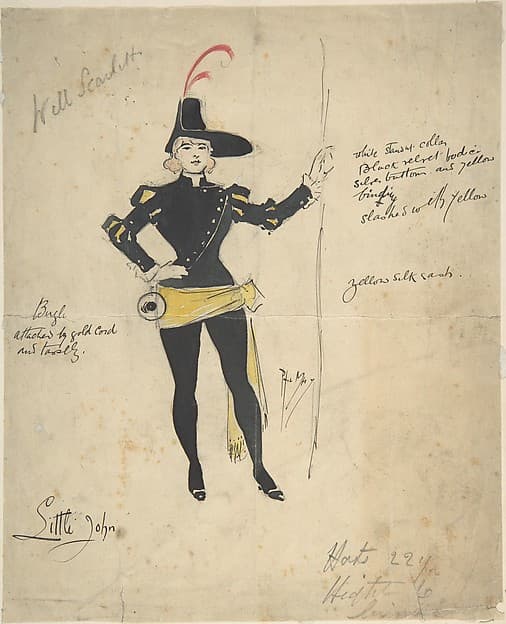 Will Scarlett
white stand collar
Black velvet bodice
silver buttons and yellow
binding
slashed with yellow
yellow silk sash.
Bugle
attached by gold cord
and tassels.
Phil May
Little John